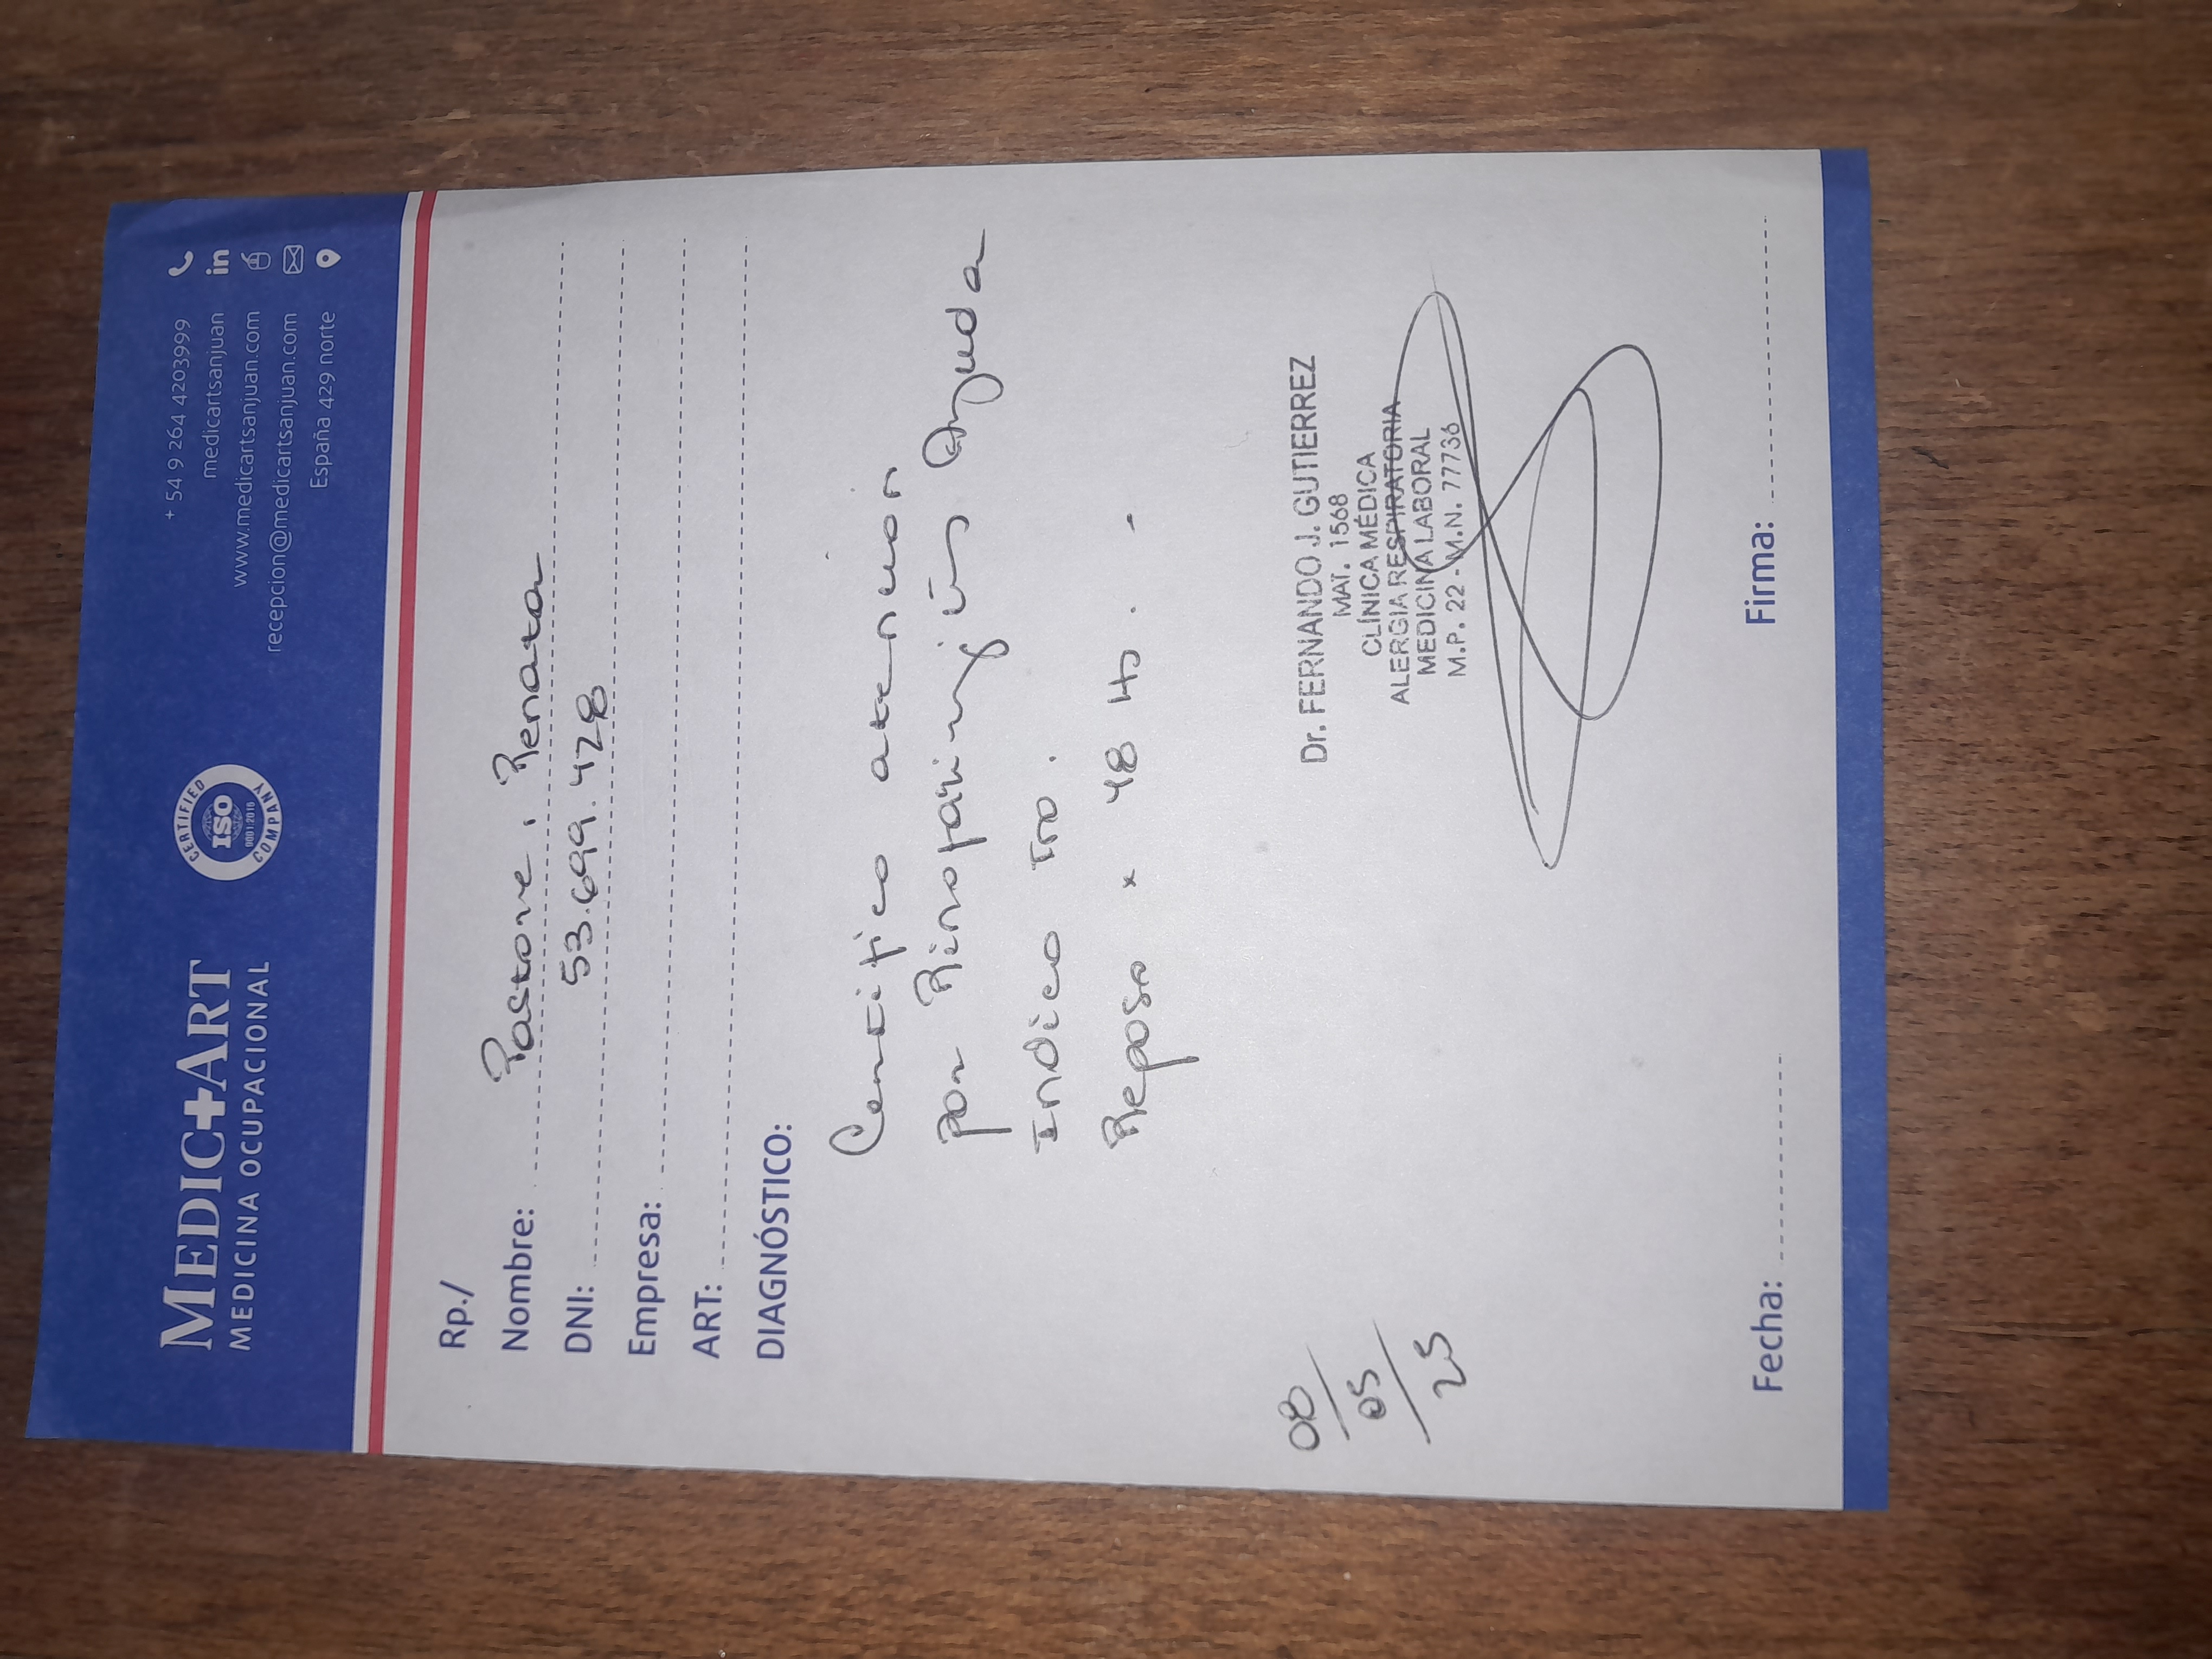 MEDIC+ART
MEDICINA OCUPACIONAL
CERTIFIED
ISO
9001:2015
COMPANY
+ 54 9 264 4203999
medicartsanjuan
in
www.medicartsanjuan.com
recepcion@medicartsanjuan.com
España 429 norte
Rp./
Nombre: Pastore. Renata
DNI: 53.699.428
Empresa:
ART:
DIAGNÓSTICO:
Certifico atencion
por Rinofaringitis Aguda
Indico tto.
Reposo x 48 Hs. -
08/05/25
Dr. FERNANDO J. GUTIERREZ
MAT. 1568
CLÍNICA MÉDICA
ALERGIA RESPIRATORIA
MEDICINA LABORAL
M.P. 22 - M.N. 77736
Fecha:
Firma: